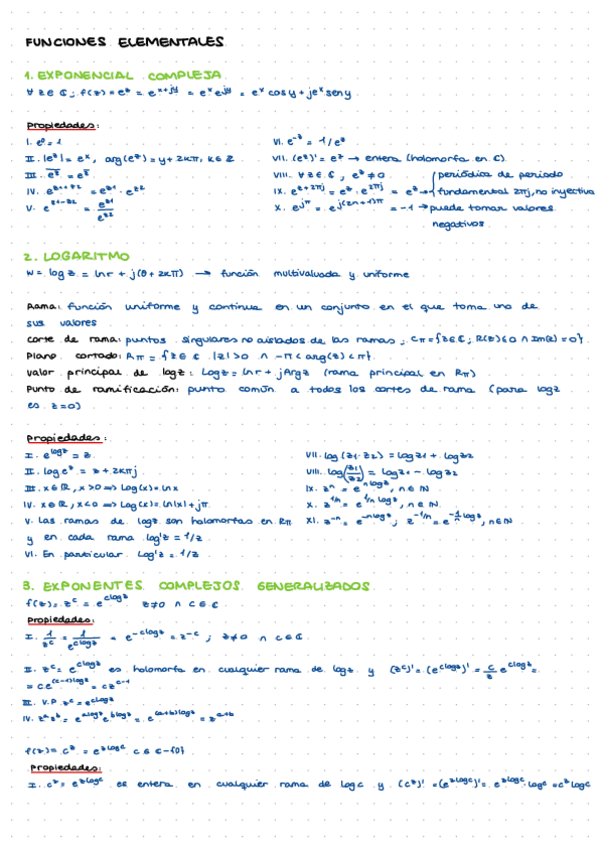 FUNCIONES ELEMENTALES
1. EXPONENCIAL COMPLEJA
∀ z ∈ ℂ; f(z) = e^z = e^(x+jy) = e^x e^(jy) = e^x cos y + j e^x sen y
Propiedades:
I. e^0 = 1
II. |e^z| = e^x, arg(e^z) = y + 2kπ, k ∈ Z
III. \overline{e^z} = e^{\overline{z}}
IV. e^(z1+z2) = e^(z1) · e^(z2)
V. e^(z1-z2) = e^(z1)/e^(z2)
VI. e^(-z) = 1/e^z
VII. (e^z)' = e^z → entera (holomorfa en ℂ)
VIII. ∀ z ∈ ℂ, e^z ≠ 0
IX. e^(z+2πj) = e^z · e^(2πj) = e^z → periódica de periodo fundamental 2πj, no inyectiva
X. e^(jπ) = e^(j(2n+1)π) = -1 → puede tomar valores negativos
2. LOGARITMO
w = log z = ln r + j(θ + 2kπ) → función multivaluada y uniforme
Rama: función uniforme y continua en un conjunto en el que toma uno de
sus valores
corte de rama: puntos singulares no aislados de las ramas; Cπ = {z ∈ ℂ; R(z) ≤ 0 ∧ Im(z) = 0}
Plano cortado: Aπ = {z ∈ ℂ |z| > 0 ∧ -π < arg(z) < π}
valor principal de log z: Log z = ln r + j Arg z (rama principal en Rπ)
Punto de ramificación: punto común a todos los cortes de rama (para log z
es z = 0)
Propiedades:
I. e^(log z) = z
II. log e^z = z + 2kπj
III. x ∈ ℝ, x > 0 ⇒ Log(x) = ln x
IV. x ∈ ℝ, x < 0 ⇒ Log(x) = ln|x| + jπ
V. Las ramas de log z son holomorfas en Rπ
y en cada rama log' z = 1/z
VI. En particular Log' z = 1/z
VII. log(z1 · z2) = log z1 + log z2
VIII. log(z1/z2) = log z1 - log z2
IX. z^n = e^(n log z), n ∈ ℕ
X. z^(1/n) = e^(1/n log z), n ∈ ℕ
XI. z^(-n) = e^(-n log z); z^(-1/n) = e^(-1/n log z), n ∈ ℕ
3. EXPONENTES COMPLEJOS GENERALIZADOS
f(z) = z^c = e^(c log z) z ≠ 0 ∧ c ∈ ℂ
Propiedades:
I. 1/z^c = 1/e^(c log z) = e^(-c log z) = z^(-c); z ≠ 0 ∧ c ∈ ℂ
II. z^c = e^(c log z) es holomorfa en cualquier rama de log z y (z^c)' = (e^(c log z))' = c/z e^(c log z) =
= c e^((c-1) log z) = c z^(c-1)
III. V.P z^c = e^(c Log z)
IV. z^a z^b = e^(a log z) e^(b log z) = e^((a+b) log z) = z^(a+b)
f(z) = c^z = e^(z log c) c ∈ ℂ - {0}
Propiedades:
I. c^z = e^(z log c) es entera en cualquier rama de log c y (c^z)' = (e^(z log c))' = e^(z log c) · log c = c^z log c